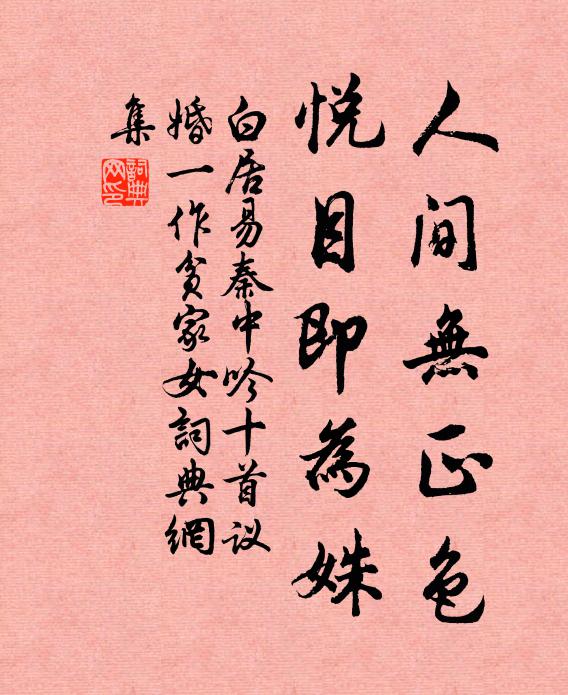 人間無正色
悦目即為姝
白居易秦中吟十首议
婚一作贫家女詞典網
集
詞典
网印